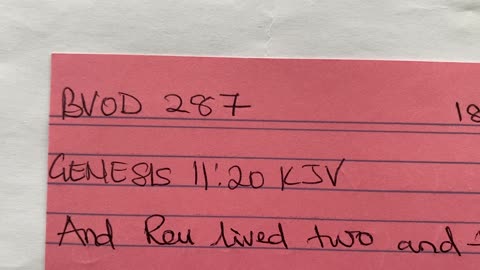 BVOD 287 18
GENESIS 11:20 KJV
And Reu lived two and